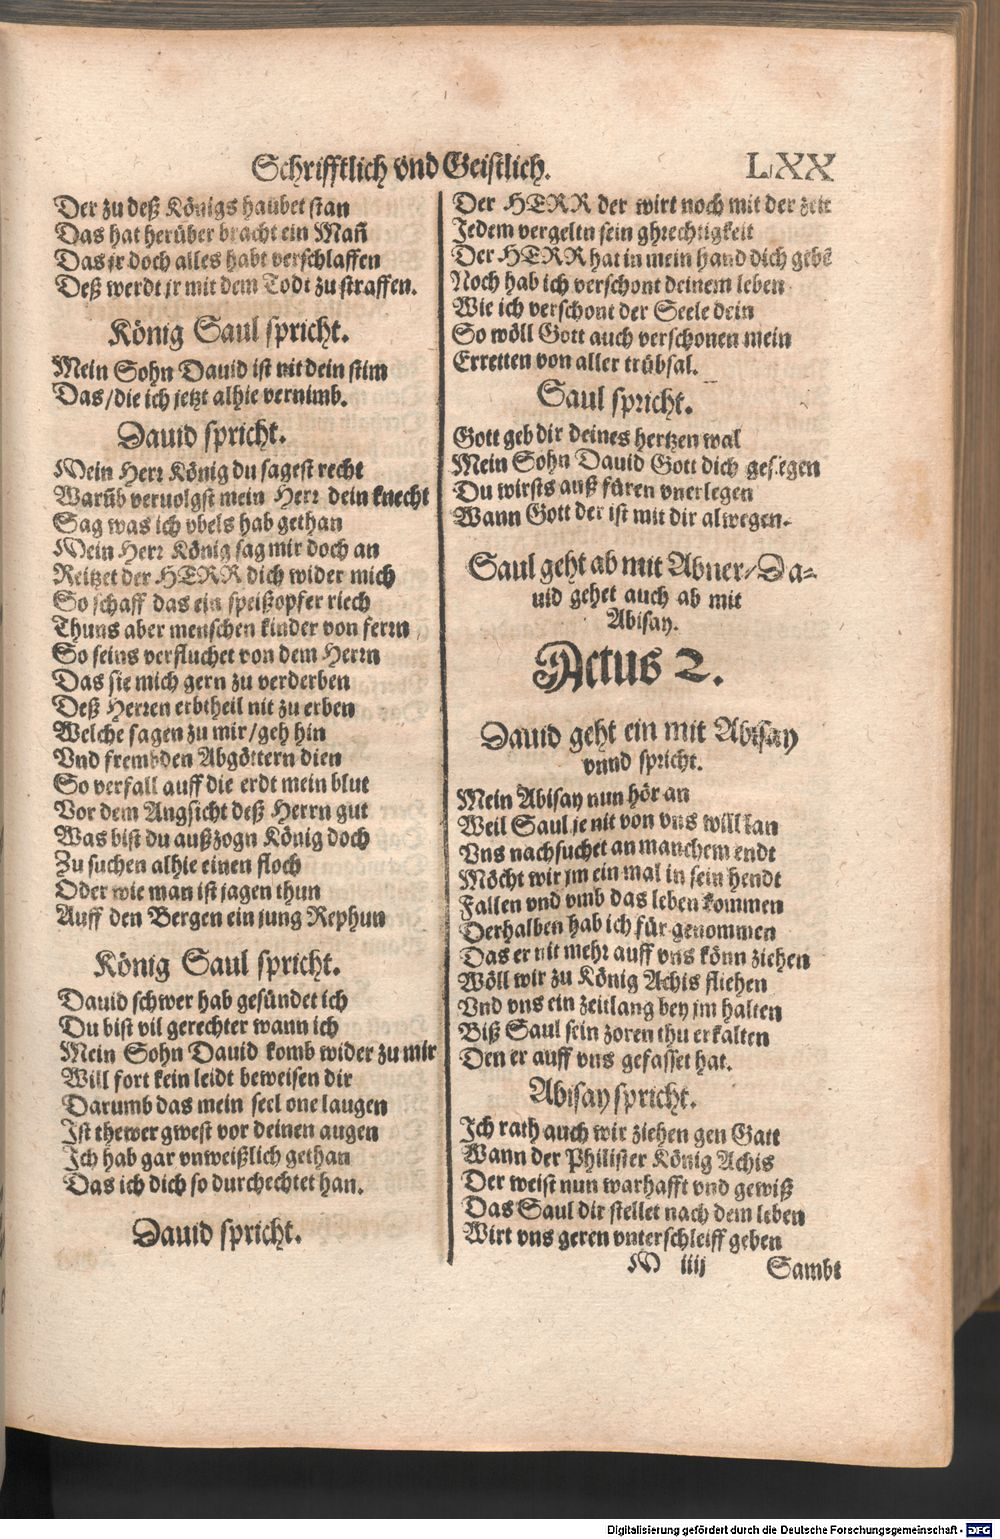 Schrifftlich vnd Geistlich. LXX
Der zu deß Königs haubet stan
Das hat herüber bracht ein Mañ
Das jr doch alles habt verschlaffen
Deß werdt jr mit dem Todt zu straffen.
König Saul spricht.
Mein Sohn Dauid ist nit dein stim
Das/die ich jetzt alhie vernimb.
Dauid spricht.
Mein Herr König du sagest recht
Warũb veruolgst mein Herr dein knecht
Sag was ich vbels hab gethan
Mein Herr König sag mir doch an
Reitzet der HERR dich wider mich
So schaff das ein speißopfer riech
Thuns aber menschen kinder von ferrn
So seins verfluchet von dem Herrn
Das sie mich gern zu verderben
Deß Herren erbtheil nit zu erben
Welche sagen zu mir/geh hin
Vnd frembden Abgöttern dien
So verfall auff die erdt mein blut
Vor dem Angsicht deß Herrn gut
Was bist du außzogn König doch
Zu suchen alhie einen floch
Oder wie man ist jagen thun
Auff den Bergen ein jung Rephun
König Saul spricht.
Dauid schwer hab gesündet ich
Du bist vil gerechter wann ich
Mein Sohn Dauid komb wider zu mir
Will fort kein leidt beweisen dir
Darumb das mein seel one laugen
Ist thewer gwest vor deinen augen
Ich hab gar vnweißlich gethan
Das ich dich so durchechtet han.
Dauid spricht.
Der HERR der wirt noch mit der zeit
Jedem vergeltn sein ghrechtigkeit
Der HERR hat in mein hand dich gebẽ
Noch hab ich verschont deinem leben
Wie ich verschont der Seele dein
So wöll Gott auch verschonen mein
Erretten von aller trübsal.
Saul spricht.
Gott geb dir deines hertzen wal
Mein Sohn Dauid Gott dich gesegen
Du wirsts auß füren vnerlegen
Wann Gott der ist mit dir alwegen.
Saul geht ab mit Abner/Da-
uid gehet auch ab mit
Abisay.
Actus 2.
Dauid geht ein mit Abisay
vnnd spricht.
Mein Abisay nun hör an
Weil Saul je nit von vns will lan
Vns nachsuchet an manchem endt
Möcht wir jm ein mal in sein hendt
Fallen vnd vmb das leben kommen
Derhalben hab ich für genommen
Das er nit mehr auff vns könn ziehen
Wöll wir zu König Achis fliehen
Vnd vns ein zeitlang bey jm halten
Biß Saul sein zoren thu erkalten
Den er auff vns gefasset hat.
Abisay spricht.
Ich rath auch wir ziehen gen Gatt
Wann der Philister König Achis
Der weist nun warhafft vnd gewiß
Das Saul dir stellet nach dem leben
Wirt vns geren vnterschleiff geben
M iiij Sambt
Digitalisierung gefördert durch die Deutsche Forschungsgemeinschaft - DFG